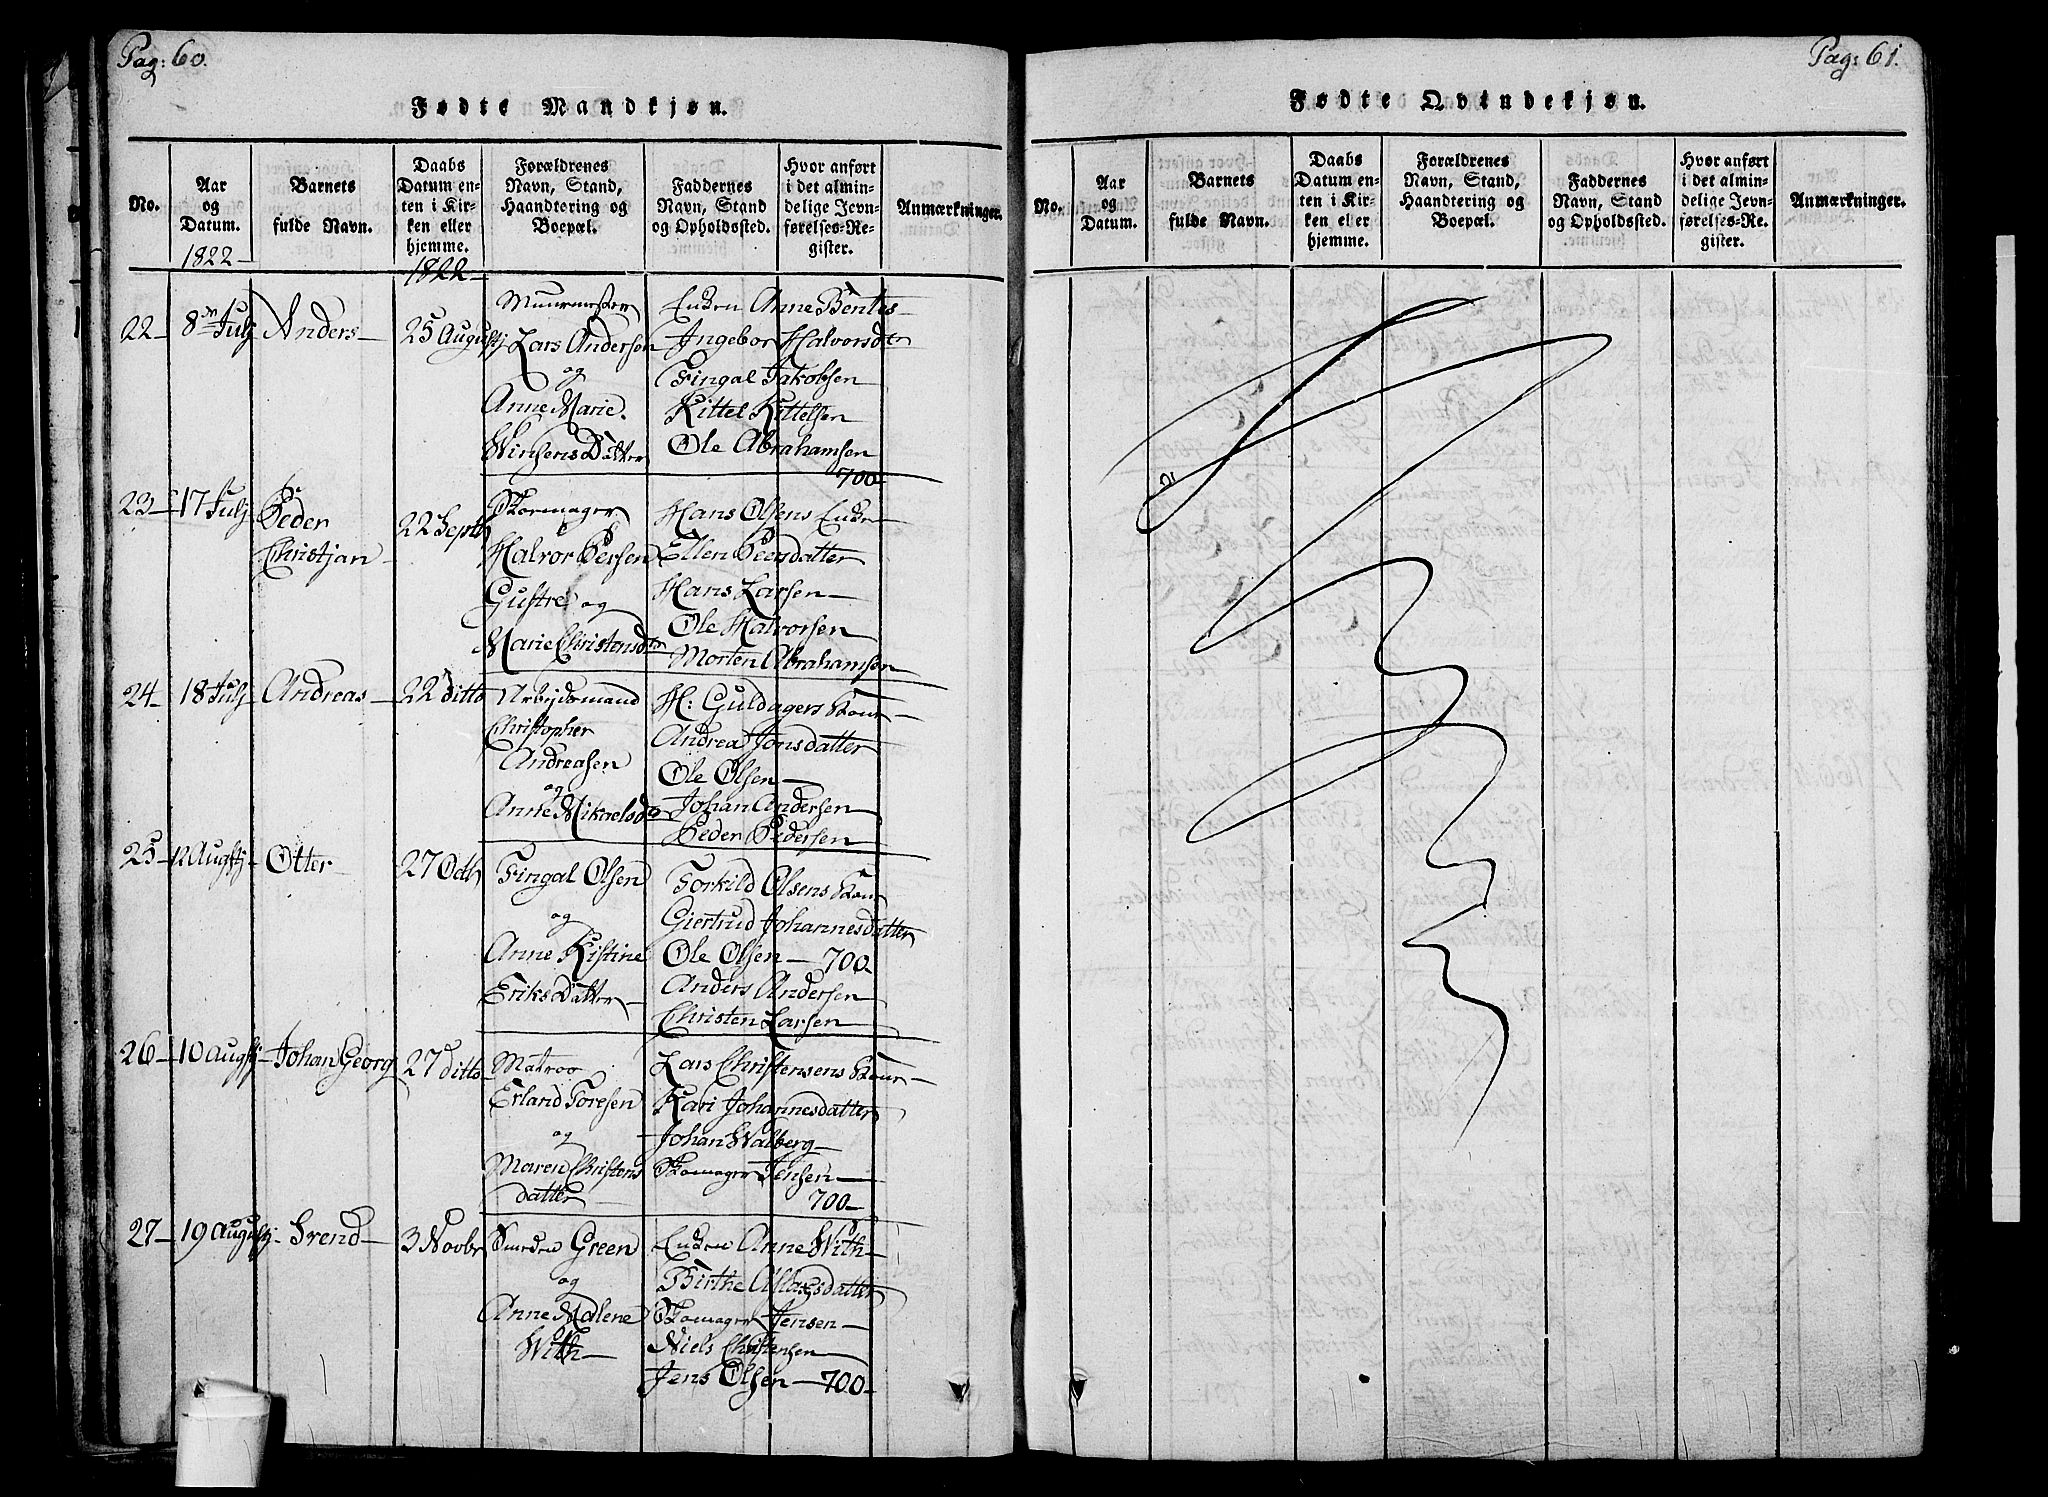 Pag: 60.
Fødte Mandkjøn.
No.
Aar og Datum.
Barnets fulde Navn.
Daabs Datum enten i Kirken eller hjemme.
Forældrenes Navn, Stand, Haandtering og Boepæl.
Faddernes Navn, Stand og Opholdssted.
Hvor anført i det almindelige Jevnførelses-Register.
Anmærkninger.
1822
1822
22
8de Julj
Anders
25 Augustj
Muurmester
Lars Andersen
og
Anne Marie
Winsens Datter
Enken Anne Bentes
Ingebor Halvorsdtr
Fingal Jakobsen
Kittel Kittelsen
Ole Abrahamsen
700
23
17 Julj
Peder
Christjan
22 Septb
Skomager
Halvor Persen
Gustre og
Marie Christensdtr
Hans Olsens Enke
Ellen Peersdatter
Hans Larsen
Ole Halvorsen
Morten Abrahamsen
24
18 Julj
Andreas
22 ditto
Arbejdsmand
Christopher
Andreasen
og
Anne Mikaelsdr
H: Guldagers Kone
Andrea Jonsdatter
Ole Olsen
Johan Andersen
Peder Pedersen
25
12 Augstj
Otter
27 Octb
Fingal Olsen
og
Anne Kistine
Eriks Datter
Torkild Olsens Kone
Giertrud Johannesdatter
Ole Olsen 700
Anders Andersen
Christen Larsen
26
10 Augstj
Johan Georg
27 ditto
Matros
Erland Toresen
og
Maren Christens
datter
Lars Christensens Kone
Kari Johannesdatter
Johan Walberg
Skomager Jensen
700
27
19 Augustj
Svend
3 Novbr
Svend Green
og
Anne Malene
With
Enken Anne With
Birthe Aslaxsdatter
Skomager Jensen
Niels Christensen
Jens Olsen 700
Pag: 61.
Fødte Qvindekjøn.
No.
Aar og Datum.
Barnets fulde Navn.
Daabs Datum enten i Kirken eller hjemme.
Forældrenes Navn, Stand, Haandtering og Boepæl.
Faddernes Navn, Stand og Opholdssted.
Hvor anført i det almindelige Jevnførelses-Register.
Anmærkninger.